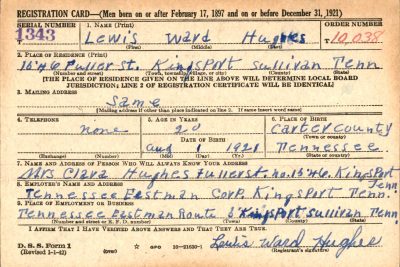 REGISTRATION CARD—(Men born on or after February 17, 1897 and on or before December 31, 1921)
SERIAL NUMBER 1. NAME (Print) ORDER NUMBER
1343 Lewis Ward Hughes T 10,038
(First) (Middle) (Last)
2. PLACE OF RESIDENCE (Print)
1546 Fuller St. Kingsport Sullivan Tenn
(Number and street) (Town, township, village, or city) (County) (State)
[THE PLACE OF RESIDENCE GIVEN ON THE LINE ABOVE WILL DETERMINE LOCAL BOARD
JURISDICTION; LINE 2 OF REGISTRATION CERTIFICATE WILL BE IDENTICAL]
3. MAILING ADDRESS
Same
[Mailing address if other than place indicated on line 2. If same insert word same]
4. TELEPHONE 5. AGE IN YEARS 6. PLACE OF BIRTH
none 20 Carter County
DATE OF BIRTH (Town or county)
Aug 1 1921 Tennessee
(Exchange) (Number) (Mo.) (Day) (Yr.) (State or country)
7. NAME AND ADDRESS OF PERSON WHO WILL ALWAYS KNOW YOUR ADDRESS
Mrs Clara Hughes Fuller st. no. 1546. Kingsport Tenn
8. EMPLOYER'S NAME AND ADDRESS
Tennessee Eastman Corp. Kingsport Tenn.
9. PLACE OF EMPLOYMENT OR BUSINESS
Tennessee Eastman Route Kingsport Sullivan Tenn
(Number and street or R. F. D. number) (Town) (County) (State)
I AFFIRM THAT I HAVE VERIFIED ABOVE ANSWERS AND THAT THEY ARE TRUE.
D. S. S. Form 1
(Revised 1-1-42) GPO 16-21630-1 Lewis Ward Hughes
(Registrant's signature)